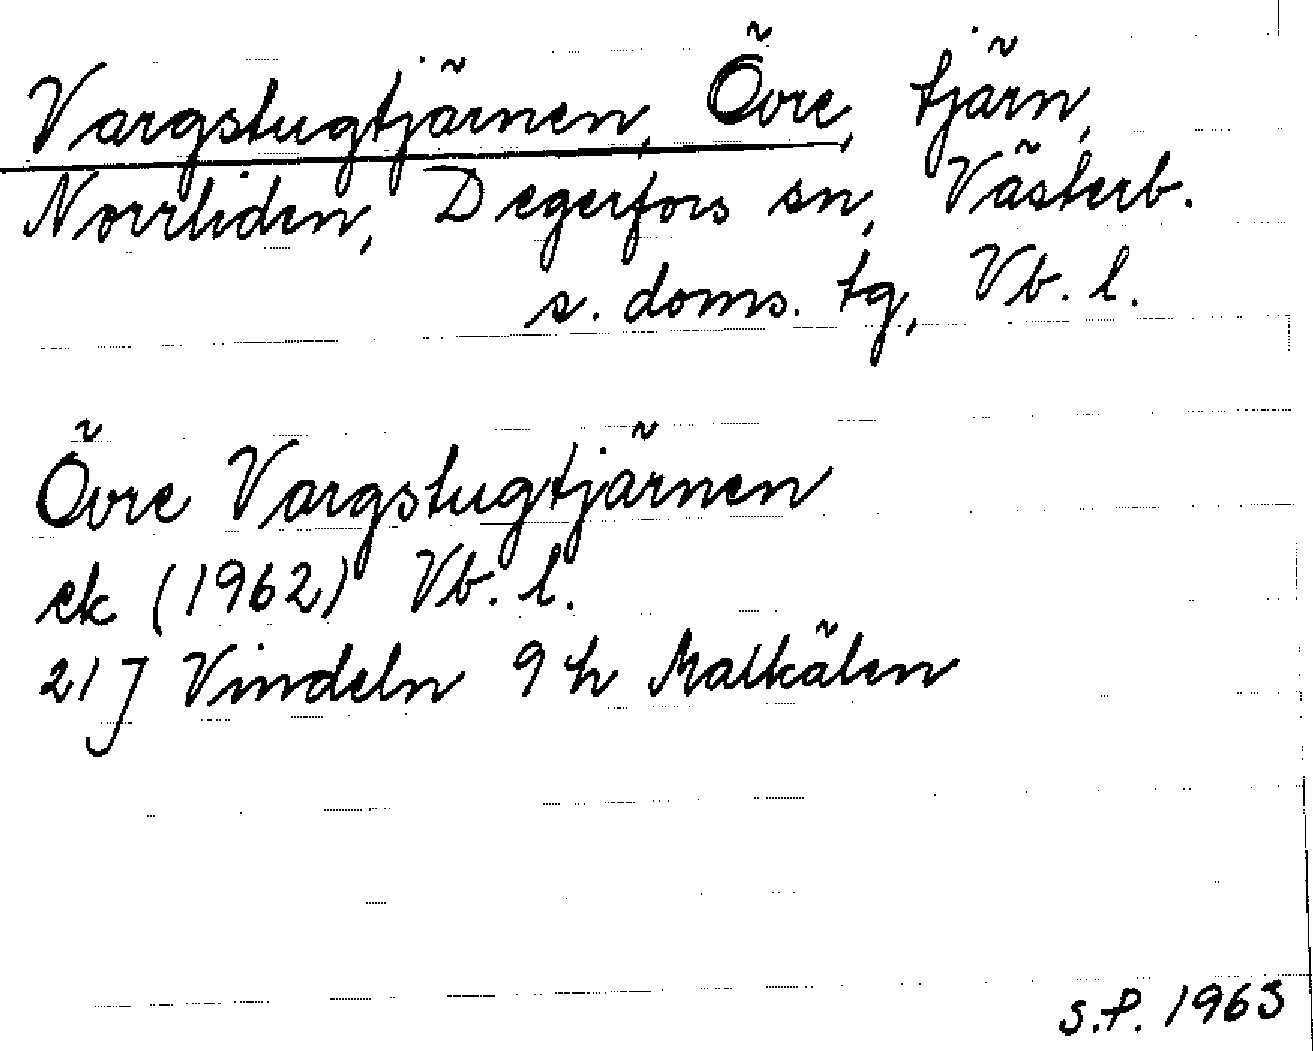 Vargstugtjärnen, Övre, tjärn,
Norrliden, Degerfors sn, Västerb.
s. doms. tg, Vb. l.
Övre Vargstugtjärnen
ek (1962) Vb. l.
21 J Vindeln 9 h Malkälen
S.P. 1963